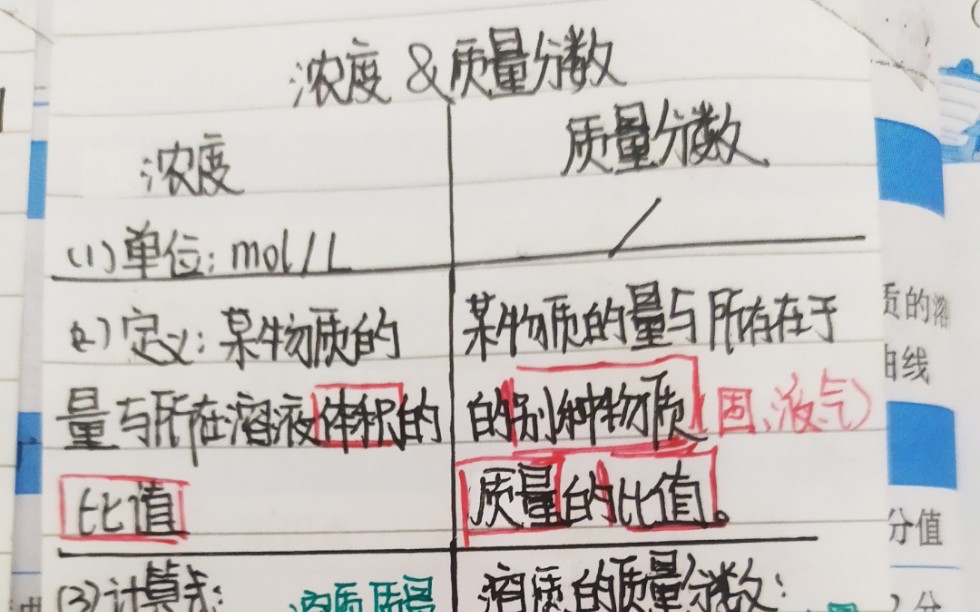 浓度 & 质量分数
浓度
质量分数
(1)单位: mol/L
/
(2)定义:某物质的
量与所在溶液体积的
比值
某物质的量与所存在于
的别种物质(固、液气)
质量的比值。
(3)计算式:
溶质质量
溶质的质量分数:
质的溶
曲线
分值